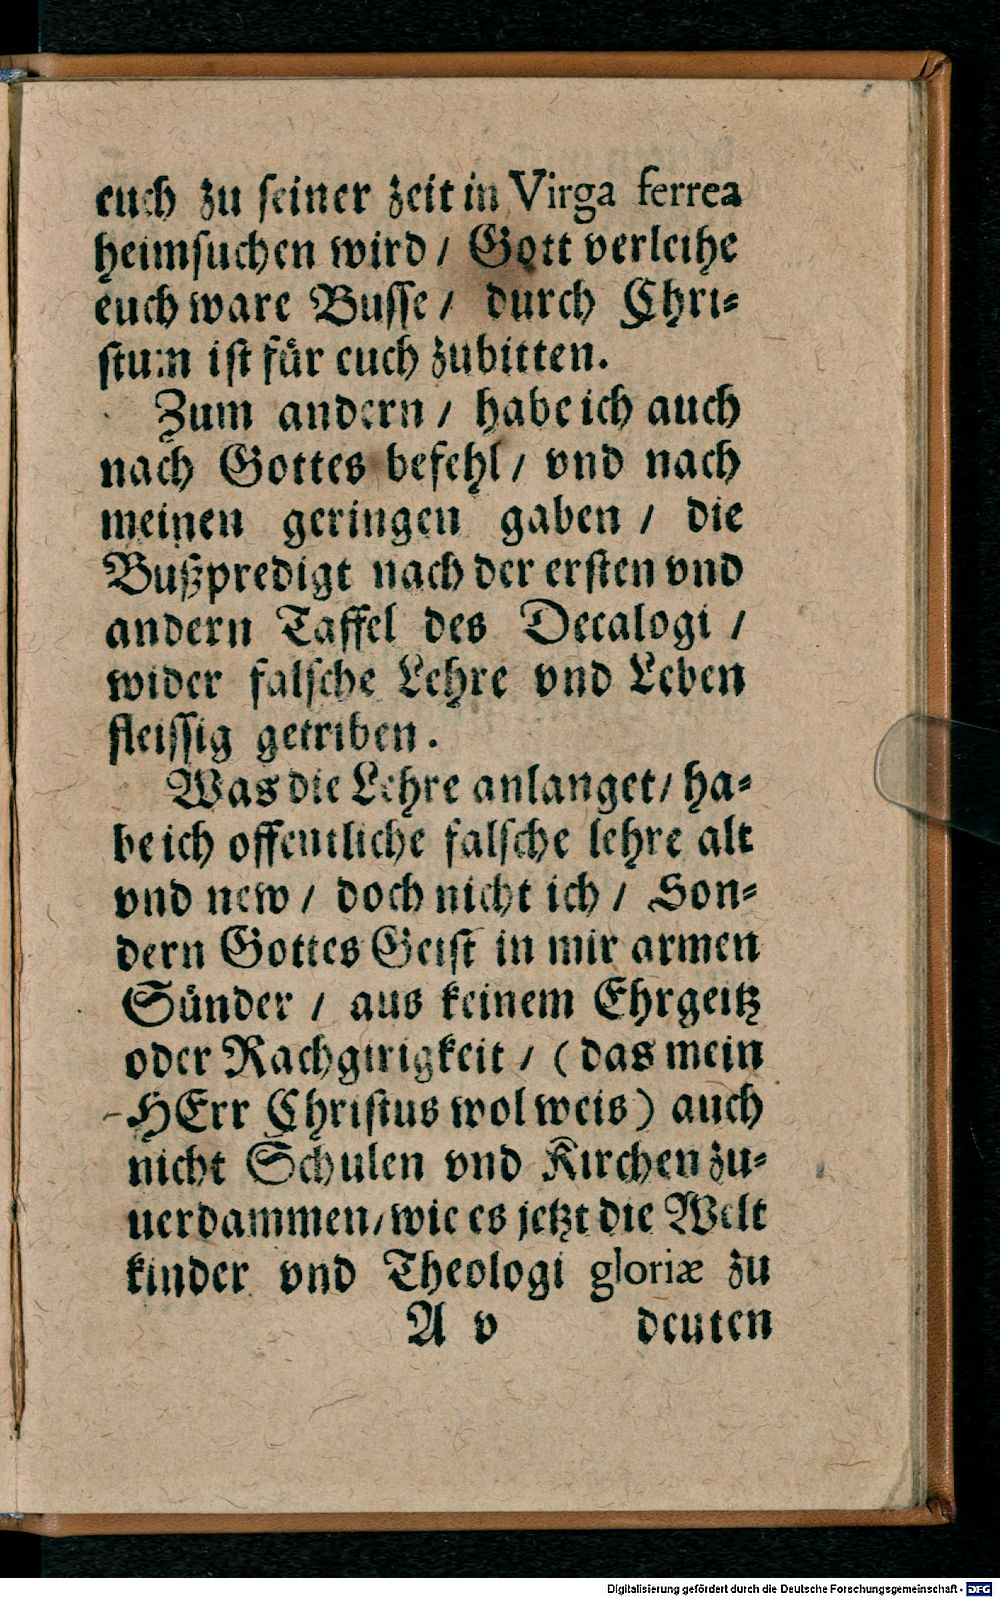 euch zu seiner zeit in Virga ferrea
heimsuchen wird / Gott verleihe
euch ware Busse / durch Chri-
stum ist für euch zubitten.
Zum andern / habe ich auch
nach Gottes befehl / vnd nach
meinen geringen gaben / die
Bußpredigt nach der ersten vnd
andern Taffel des Decalogi /
wider falsche Lehre vnd Leben
fleissig getriben.
Was die Lehre anlanget / ha-
be ich offentliche falsche lehre alt
vnd new / doch nicht ich / Son-
dern Gottes Geist in mir armen
Sünder / aus keinem Ehrgeitz
oder Rachgirigkeit / (das mein
HErr Christus wol weis) auch
nicht Schulen vnd Kirchen zu-
uerdammen / wie es jetzt die Welt
kinder vnd Theologi gloriæ zu
A v deuten
Digitalisierung gefördert durch die Deutsche Forschungsgemeinschaft - DFG